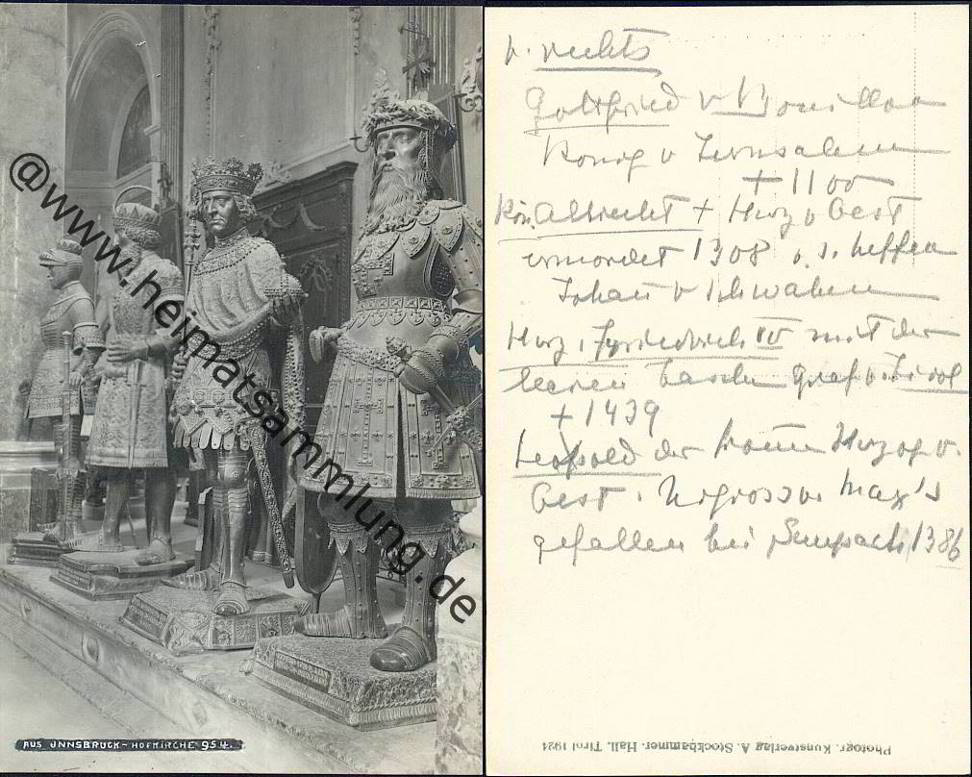 @www.heimatsammlung.de
AUS INNSBRUCK - HOFKIRCHE 954.
v. rechts
Gottfried v Bouillon
König v Jerusalem
+ 1100
Kön. Albrecht + Herz v Oest
ermordet 1308 v. s. Neffen
Johan v Schwaben
Herz. Friedrich IV mit der
leeren Tasche Graf v. Tirol
+ 1439
Leopold der Herzog v.
Oest. Max's
gefallen bei Sempach 1386
Photogr. Kunstverlag A. Stockhammer, Hall, Tirol 1924